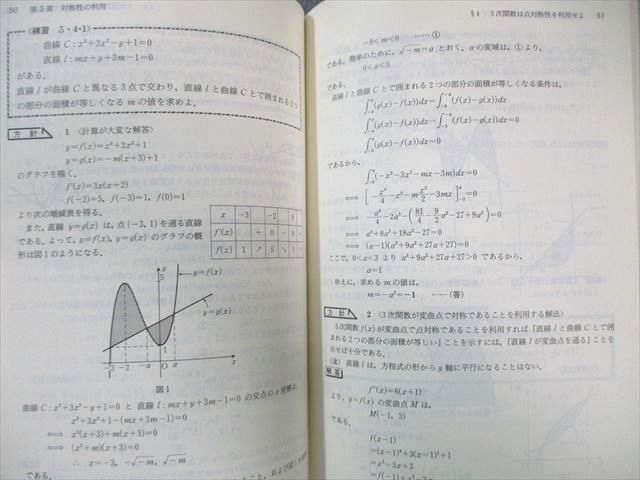 50 第3章 対称性の利用
〈練習 3・4・1〉
曲線 C : x³+3x²−y+1=0
直線 l : mx+y+3m−1=0
がある.
直線 l が曲線 C と異なる3点で交わり, 直線 l と曲線 C とで囲まれる2つ
の部分の面積が等しくなる m の値を求めよ.
方針 1 〈計算が大変な解答〉
y=f(x)=x³+3x²+1
y=g(x)=−m(x+3)+1
のグラフを描く.
f'(x)=3x(x+2)
f(−2)=5, f(−3)=1, f(0)=1
より次の増減表を得る.
また, 直線 y=g(x) は, 点(−3, 1)を通る直線
である. よって, y=f(x), y=g(x) のグラフの概
形は図1のようになる.
x −3 −2
f'(x) + 0 − 0
f(x) 1 ↗ 5 ↘ 1
y
5
y=f(x)
y=g(x)
1
−3 −2 −a O a x
図1
曲線 C : x³+3x²−y+1=0 と 直線 l : mx+y+3m−1=0 の交点の x 座標は,
x³+3x²+1−(mx+3m−1)=0
⟺ x²(x+3)+m(x+3)=0
⟺ (x²+m)(x+3)=0
∴ x=−3, −√−m, √−m
である.
§4 3次関数は点対称性を利用せよ 51
−9<m<0 ……①
である. 簡単のために, √−m=a とおく. a の変域は, ①より,
0<a<3
である.
直線 l と曲線 C とで囲まれる2つの部分の面積が等しくなる条件は,
∫(g(x)−f(x))dx=∫(f(x)−g(x))dx
⟺ ∫(g(x)−f(x))dx−∫(f(x)−g(x))dx=0
∫(g(x)−f(x))dx=0
であるから,
∫(−x³−3x²−mx−3m)dx=0
⟺ [−x⁴/4−x³−m x²/2−3mx]=0
⟺ −a⁴/4−2a³−(81/4−9/2 a²−27+9a²)=0
⟺ a⁴+8a³+18a²−27=0
⟺ (a−1)(a³+9a²+27a+27)=0
ここで, 0<a<3 より a³+9a²+27a+27>0 であるから,
a=1
ゆえに, 求める m の値は,
m=−a²=−1 ……(答)
方針 2 〈3次関数が変曲点で対称であることを利用する解法〉
3次関数 f(x) が変曲点で点対称であることを利用すれば『直線 l と曲線 C とで囲
まれる2つの部分の面積が等しい』ことを示すには,『直線 l が変曲点を通る』ことを
示せば十分である.
(注) 直線 l は, 方程式の形から y 軸に平行になることはない.
解答
f''(x)=6(x+1)
より, y=f(x) の変曲点 M は,
M(−1, 3)
である.
f(x−1)
=(x−1)³+3(x−1)²+1
=x³−3x+3